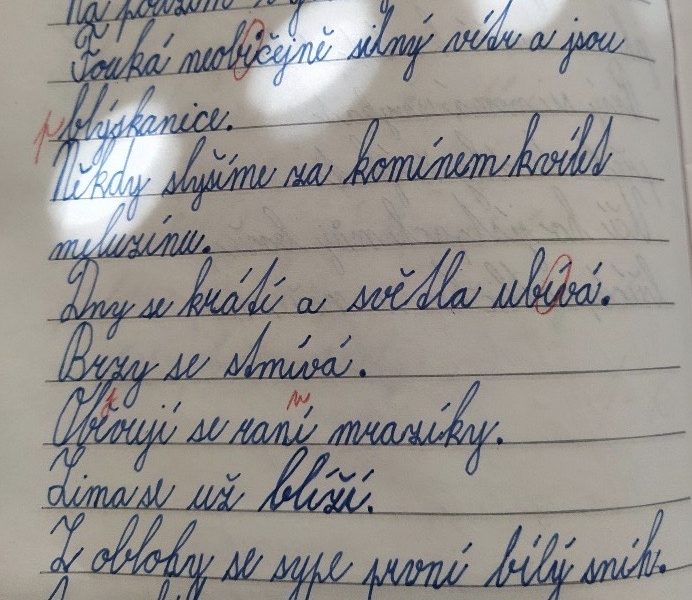 Na podzim
Fouká neobičejně silný vítr a jsou
blýskanice.
Někdy slyšíme za komínem kvílet
meluzínu.
Dny se krátí a světla ubívá.
Brzy se stmívá.
se raní mrazíky.
Zima se už blíží.
Z oblohy se sype první bílý sníh.